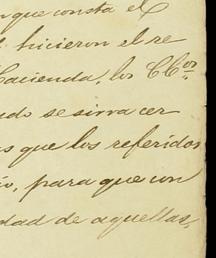 que consta el
hicieron el re
Hacienda, los CC.os
do se sirva cer
s que los referidos
para que con
dad de aquellas,